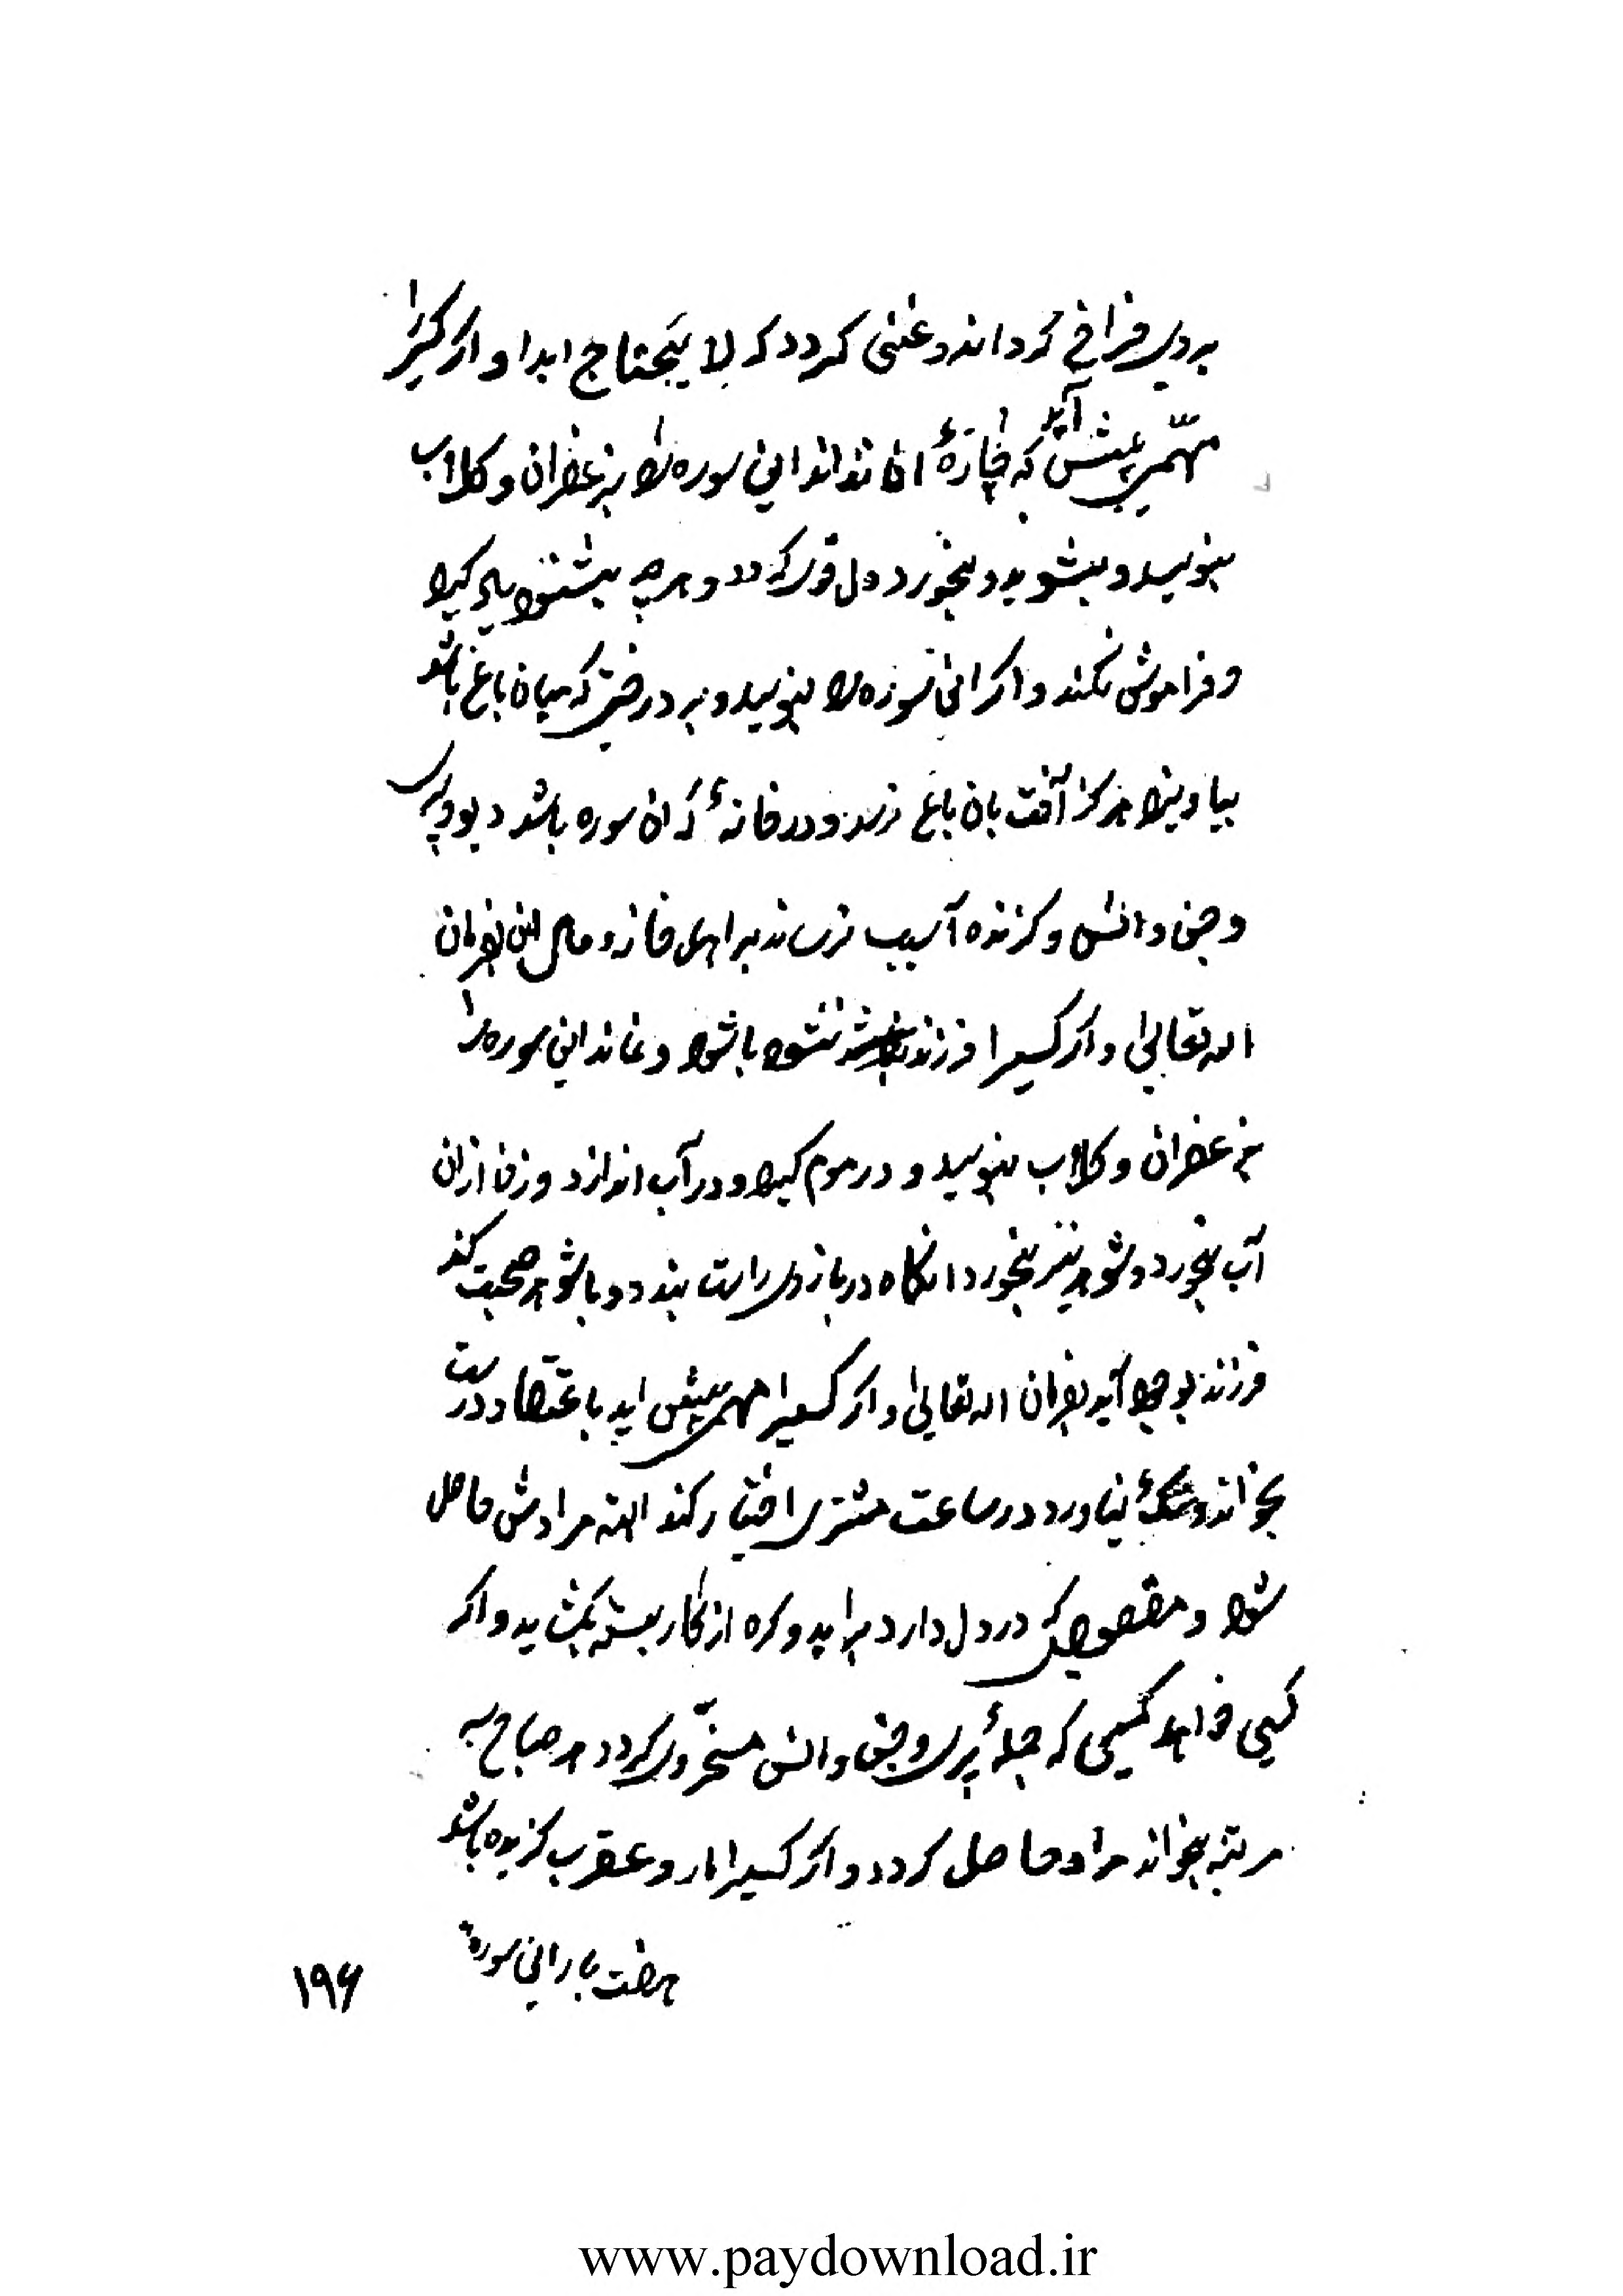 بروی فراخ گرداند و غنی کردد که لا یحتاج ابدا و اگر کسیرا
مهمی پیش آید که چارهٔ آن نداند این سوره را بزعفران و کلاب
بنویسد و بشوید و بخورد دل قوی کردد و هرچه بشنود یاد کیرد
و فراموش نکند و اکر این سوره را بنویسد و بر درختی که میان باغ باشد
بیاویزد هرکز آفت بان باغ نرسد و در خانهٔ که این سوره باشد دیو و پری
و جن و انس و کزنده آسیب نرساند بر اهل خانه و مال این بفرمان
اله تعالی و اکر کسیرا فرزند نشود باشد و نماند این سوره را
بزعفران و کلاب بنویسد و در موم کیرد و در آب اندازد و زن از آن
آب بخورد و شوهر نیز بخورد انکاه در بازوی راست بندد و با شوهر صحبت کند
فرزند بوجود آید بفرمان اله تعالی و اکر کسیرا مهمی پیش اید باعتقاد درست
بخواند و شک نیاورد و در ساعت مشتری اختیار کند البته مرادش حاصل
شود و مقصودی که در دل دارد براید و کره از کار بسته بکشاید و اکر
کسی خواهد که جملهٔ پری و جن و انس مسخر وی کردد هر صباح سه
مرتبه بخواند مراد حاصل کردد و اکر کسیرا مار و عقرب کزیده باشد
هفت بار این سوره
۱۹۶
www.paydownload.ir